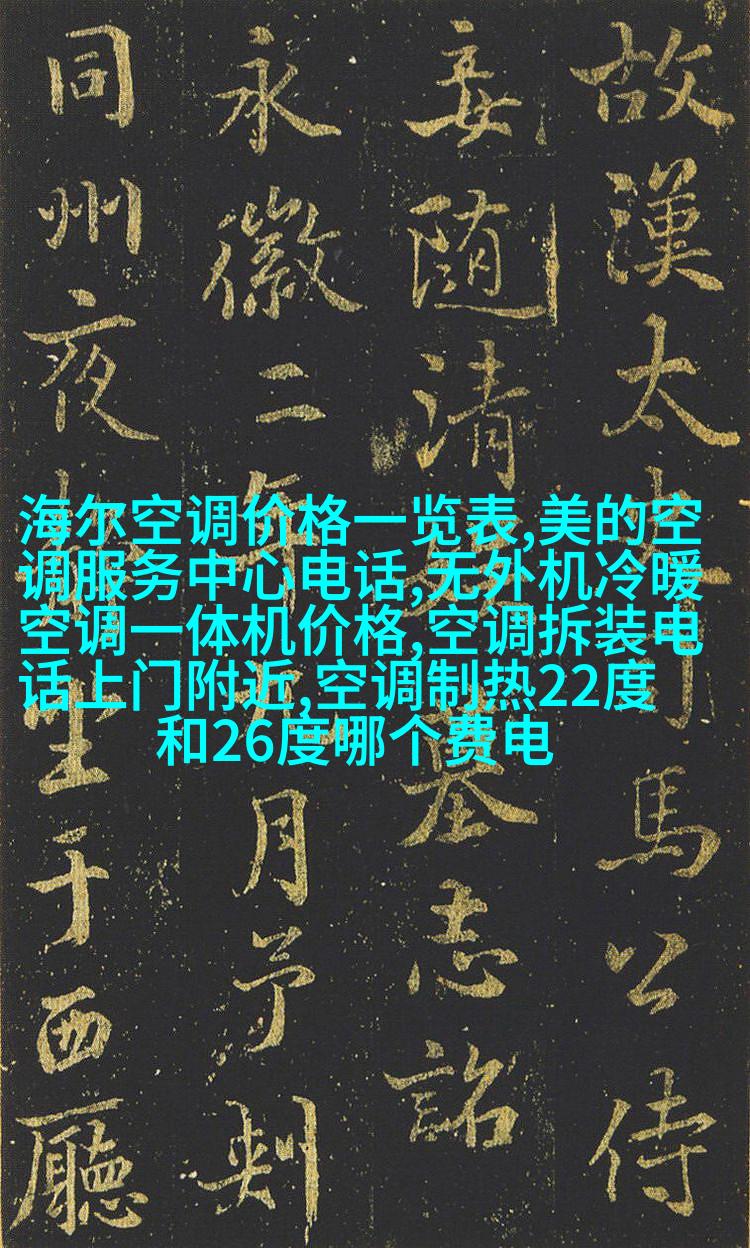 海尔空调价格一览表,美的空
调服务中心电话,无外机冷暖
空调一体机价格,空调拆装电
话上门附近,空调制热22度
和26度哪个费电
故漢太馬公侍
妾随清墓志銘
永徽二年月予判
同州夜坐于西廳